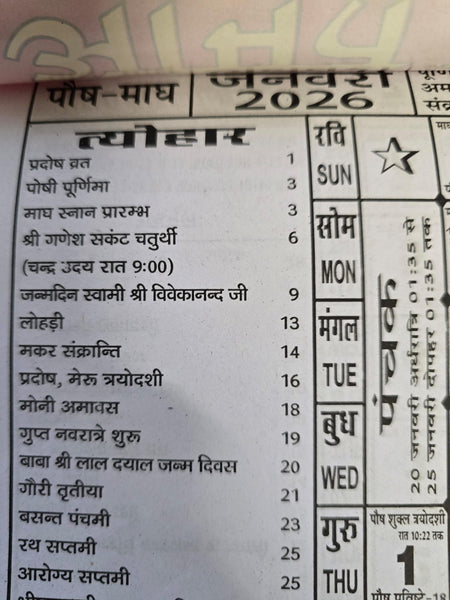 पौष-माघ
जनवरी
2026
त्योहार
प्रदोष व्रत 1
पोषी पूर्णिमा 3
माघ स्नान प्रारम्भ 3
श्री गणेश सकंट चतुर्थी 6
(चन्द्र उदय रात 9:00)
जन्मदिन स्वामी श्री विवेकानन्द जी 9
लोहड़ी 13
मकर संक्रान्ति 14
प्रदोष, मेरू त्रयोदशी 16
मोनी अमावस 18
गुप्त नवरात्रे शुरू 19
बाबा श्री लाल दयाल जन्म दिवस 20
गौरी तृतीया 21
बसन्त पंचमी 23
रथ सप्तमी 25
आरोग्य सप्तमी 25
रवि
SUN
सोम
MON
मंगल
TUE
बुध
WED
गुरु
THU
पंचक
20 जनवरी अर्धरात्रि 01:35 से
25 जनवरी दोपहर 01:35 तक
पौष शुक्ल त्रयोदशी
रात 10:22 तक
1
पौष प्रविष्टे-18